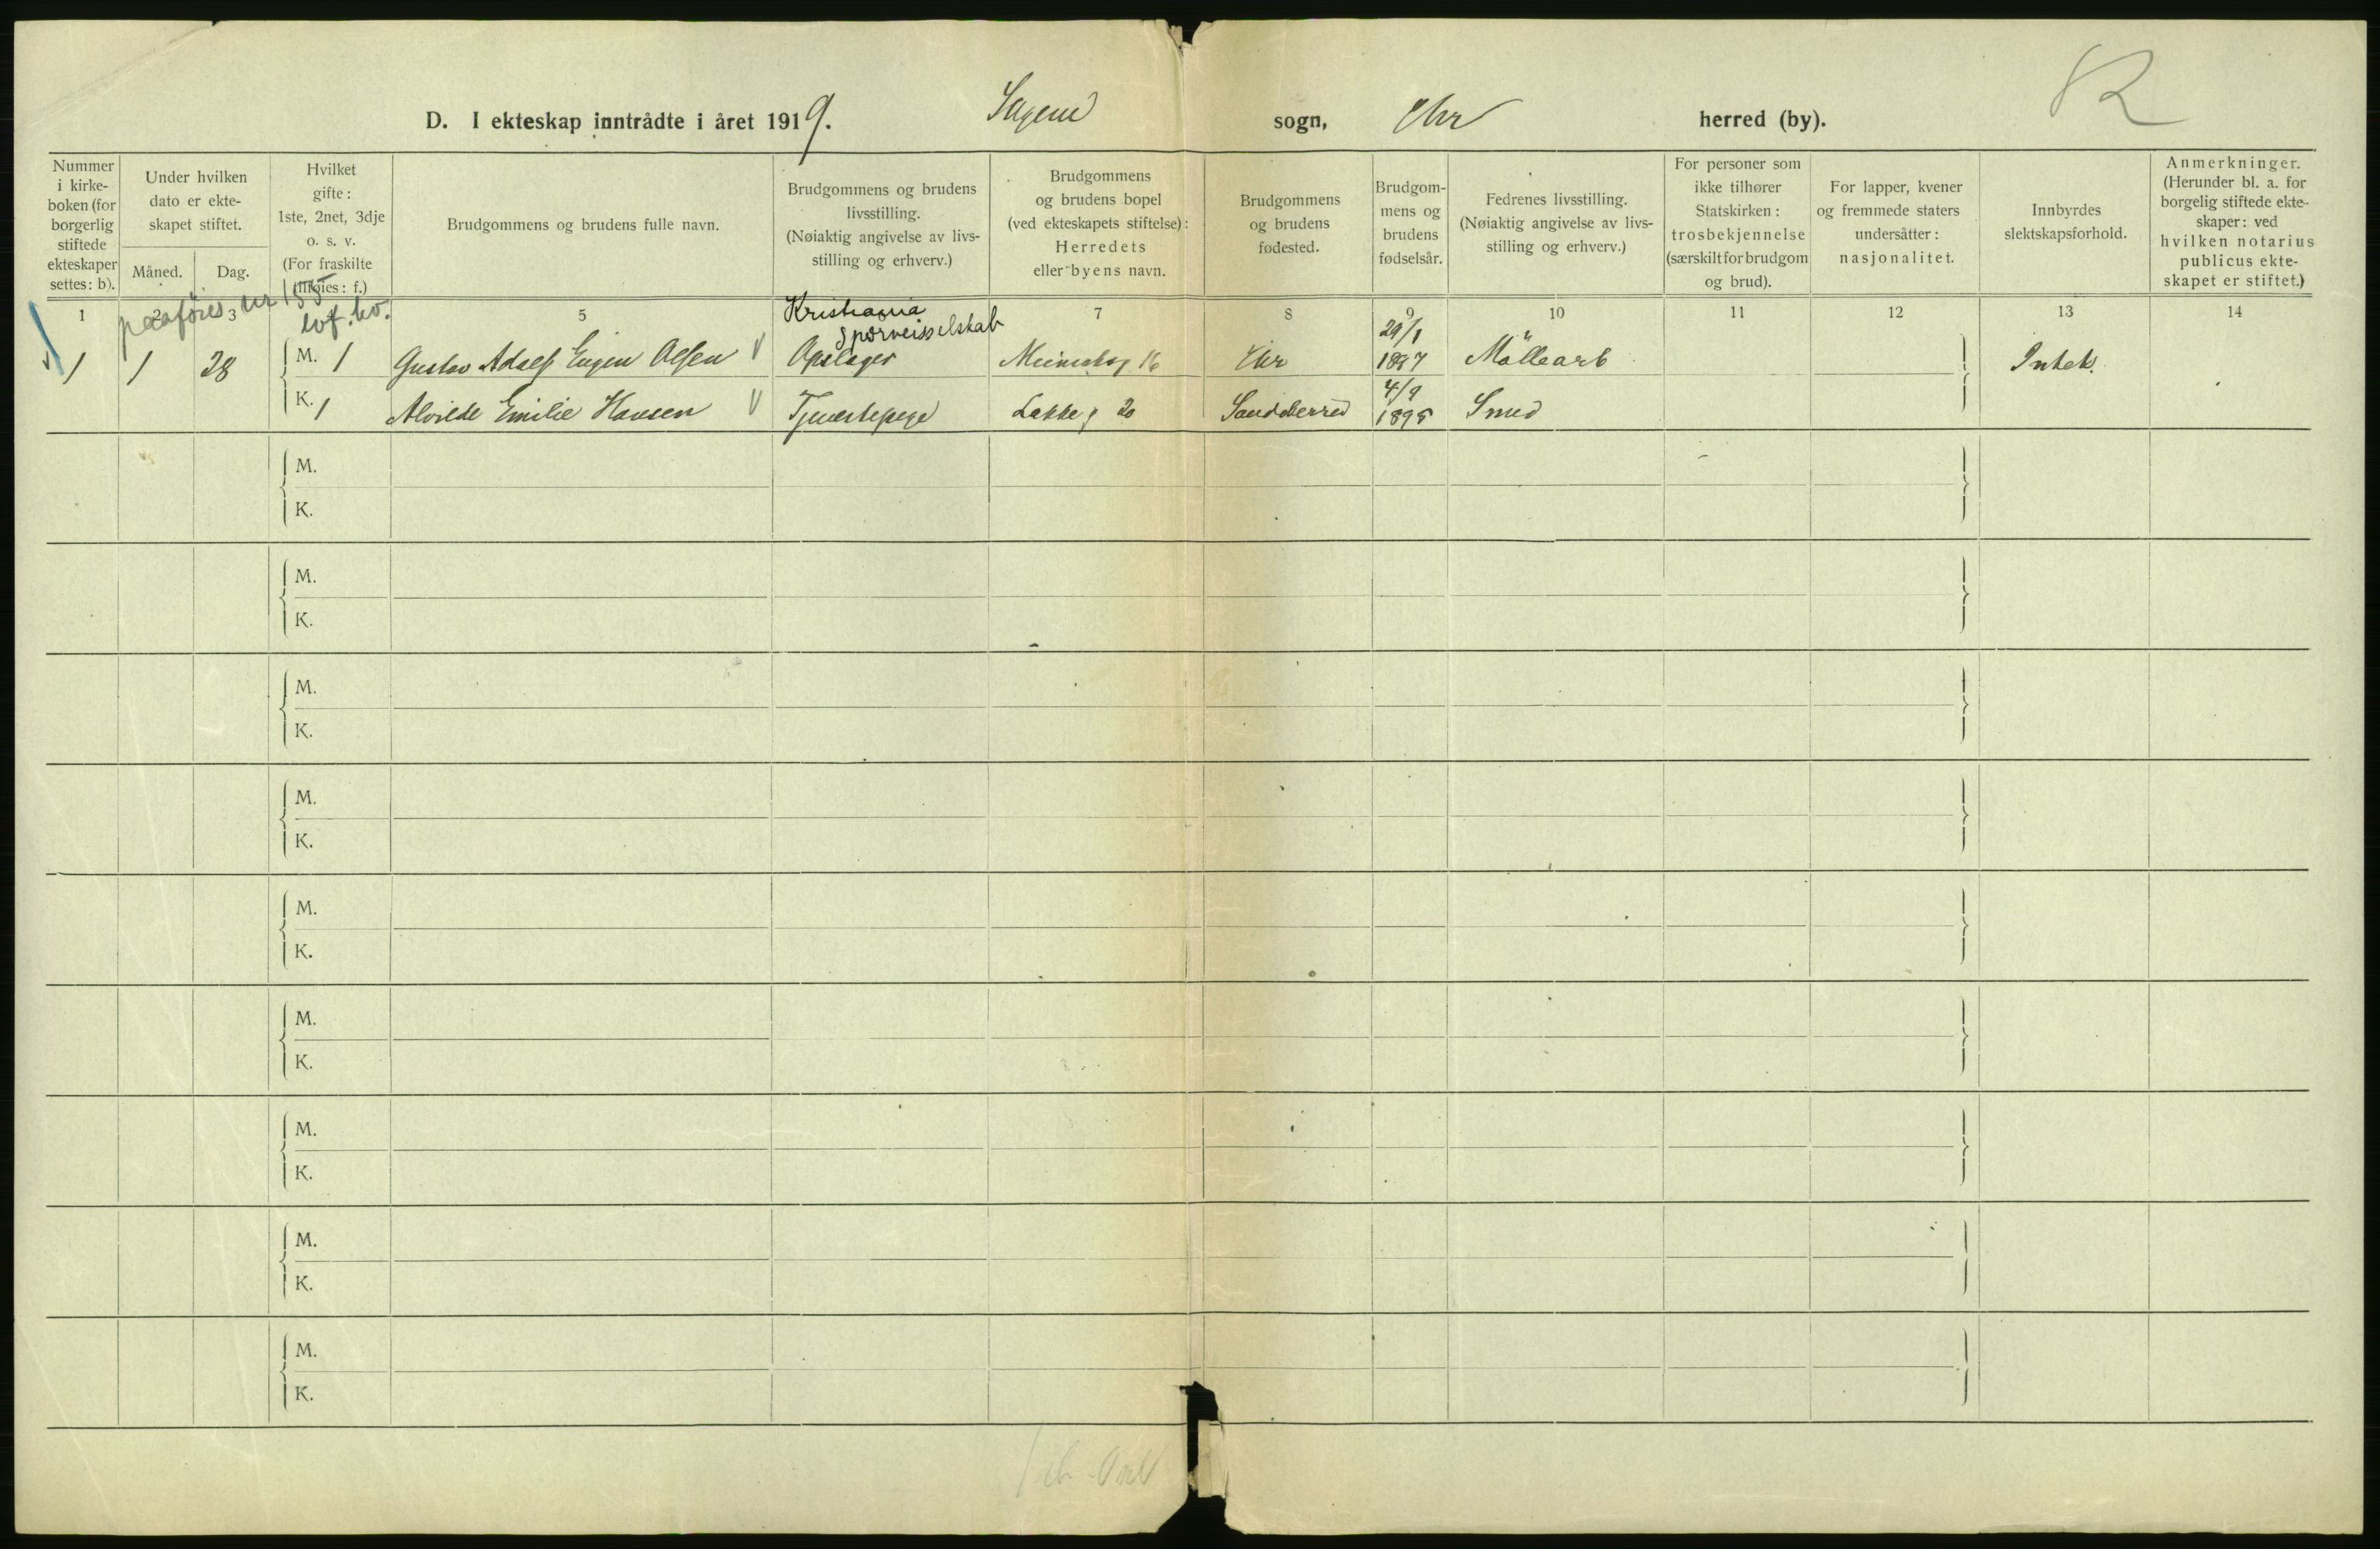 D. I ekteskap inntrådte i året 1919. Sagene sogn, Chr herred (by).
Nummer i kirke- boken (for borgerlig stiftede ekteskaper settes: b).
Under hvilken dato er ekte- skapet stiftet.
Måned. Dag.
Hvilket gifte: 1ste, 2net, 3dje o. s. v. (For fraskilte tilføies: f.)
Brudgommens og brudens fulle navn.
Brudgommens og brudens livsstilling. (Nøiaktig angivelse av livs- stilling og erhverv.)
Brudgommens og brudens bopel (ved ekteskapets stiftelse): Herredets eller byens navn.
Brudgommens og brudens fødested.
Brudgom- mens og brudens fødselsår.
Fedrenes livsstilling. (Nøiaktig angivelse av livs- stilling og erhverv.)
For personer som ikke tilhører Statskirken: trosbekjennelse (særskilt for brudgom og brud).
For lapper, kvener og fremmede staters undersåtter: nasjonalitet.
Innbyrdes slektskapsforhold.
Anmerkninger. (Herunder bl. a. for borgelig stiftede ekte- skaper: ved hvilken notarius publicus ekte- skapet er stiftet.)
paaføres nr 155
1 3 5 7 8 9 10 11 12 13 14
Kristiania Sporveisselskab
1 1 28 M. 1 Gustav Adolf Eugen Olsen Chr 29/1 1897 Möllearb
K. 1 Alvilde Emilie Hansen Tjenestepige Lakkeg 20 Sandeherred 4/9 1895 Smed
M.
K.
M.
K.
M.
K.
M.
K.
M.
K.
M.
K.
M.
K.
M.
K.
M.
K.